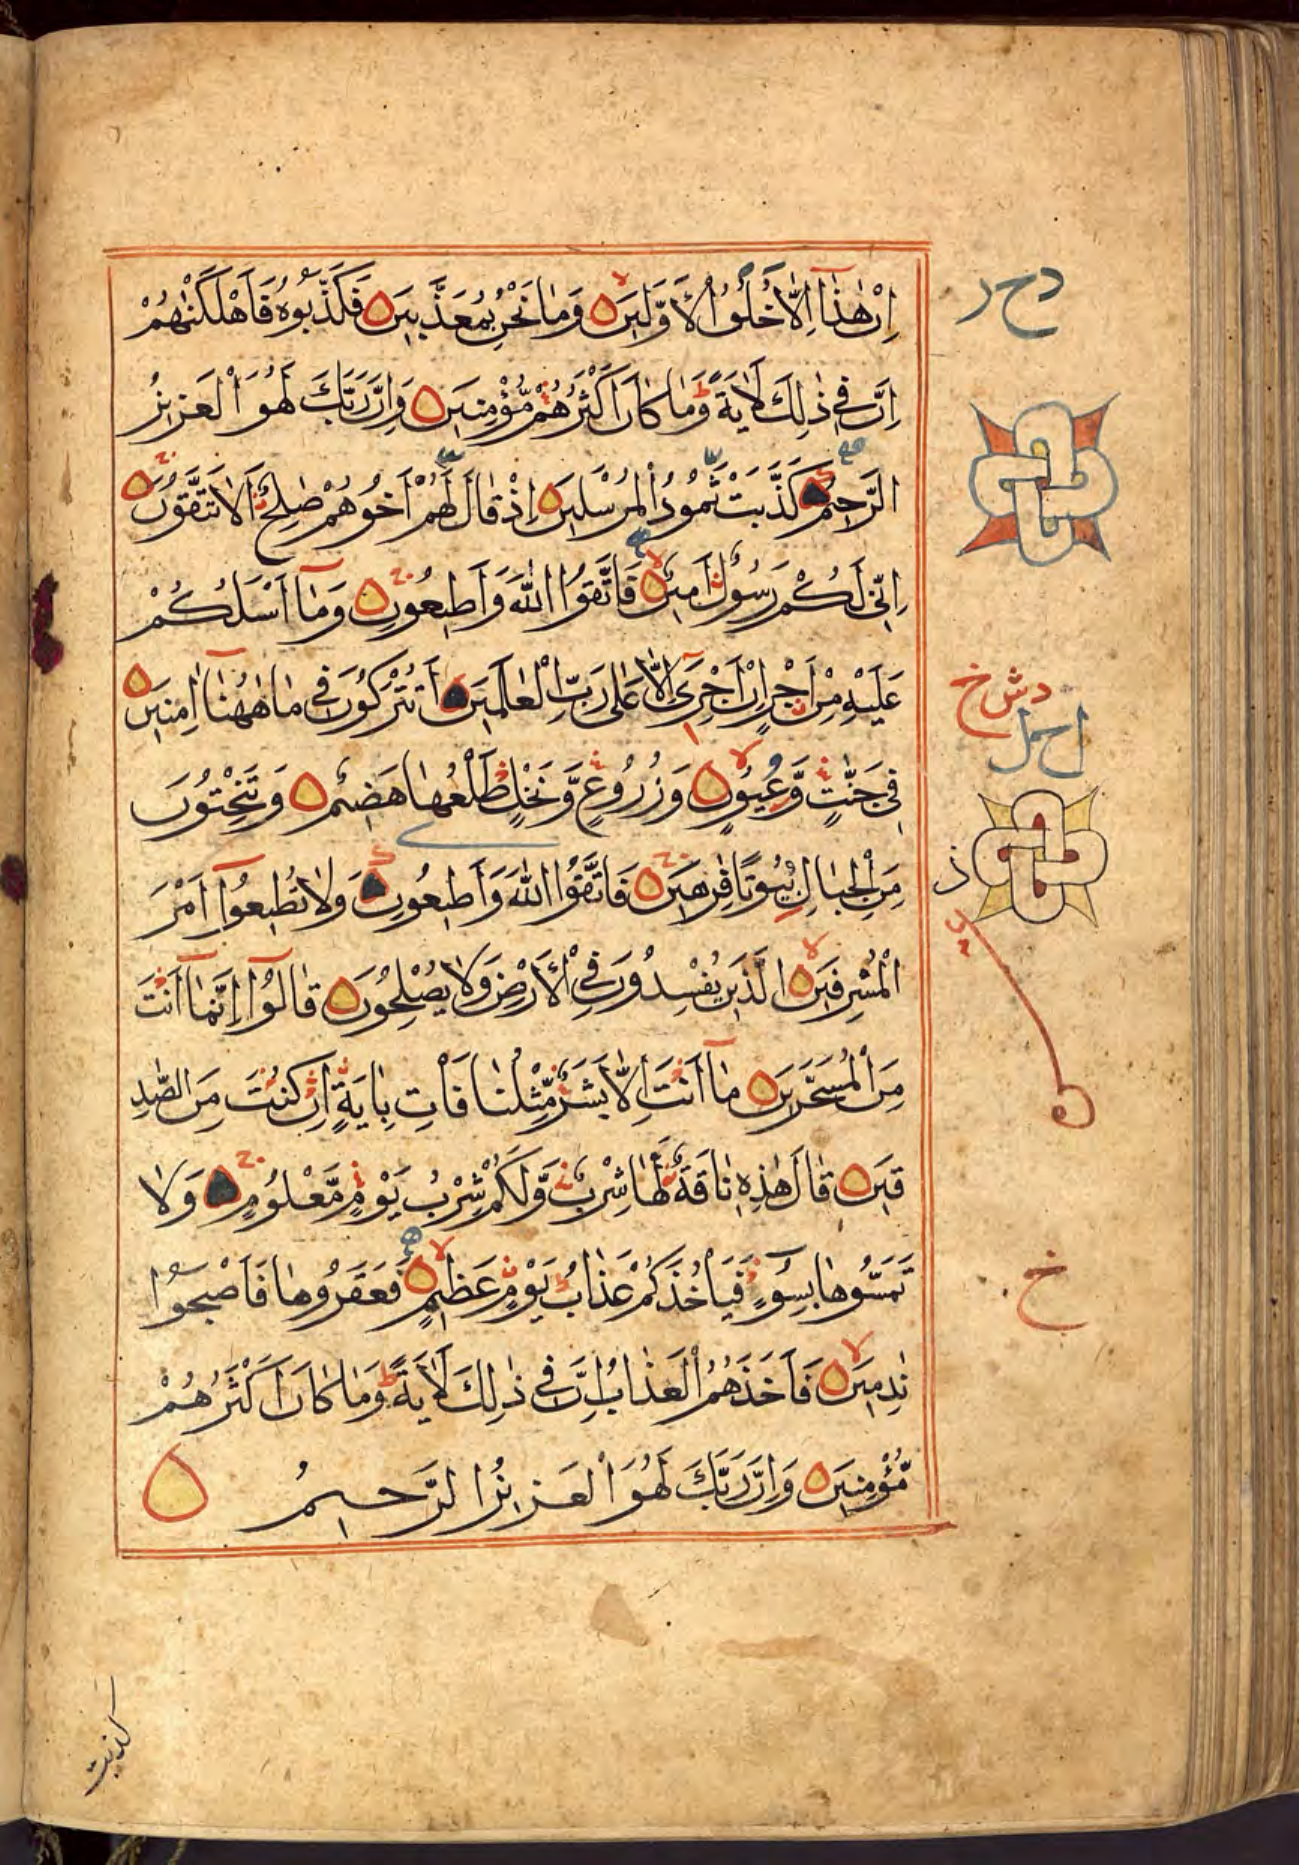 اِنْ هٰذَآ اِلَّا خُلُقُ الْاَوَّلِينَ وَمَا نَحْنُ بِمُعَذَّبِينَ فَكَذَّبُوهُ فَاَهْلَكْنٰهُمْ
اِنَّ فِي ذٰلِكَ لَاٰيَةً وَمَا كَانَ اَكْثَرُهُمْ مُّؤْمِنِينَ وَاِنَّ رَبَّكَ لَهُوَ الْعَزِيزُ
الرَّحِيمُ كَذَّبَتْ ثَمُودُ الْمُرْسَلِينَ اِذْ قَالَ لَهُمْ اَخُوهُمْ صٰلِحٌ اَلَا تَتَّقُونَ
اِنِّي لَكُمْ رَسُولٌ اَمِينٌ فَاتَّقُوا اللّٰهَ وَاَطِيعُونِ وَمَآ اَسْـَٔلُكُمْ
عَلَيْهِ مِنْ اَجْرٍ اِنْ اَجْرِيَ اِلَّا عَلٰى رَبِّ الْعَالَمِينَ اَتُتْرَكُونَ فِي مَا هٰهُنَآ اٰمِنِينَ
فِي جَنّٰتٍ وَّعُيُونٍ وَزُرُوعٍ وَّنَخْلٍ طَلْعُهَا هَضِيمٌ وَتَنْحِتُونَ
مِنَ الْجِبَالِ بُيُوتًا فٰرِهِينَ فَاتَّقُوا اللّٰهَ وَاَطِيعُونِ وَلَا تُطِيعُوٓا اَمْرَ
الْمُسْرِفِينَ الَّذِينَ يُفْسِدُونَ فِي الْاَرْضِ وَلَا يُصْلِحُونَ قَالُوٓا اِنَّمَآ اَنْتَ
مِنَ الْمُسَحَّرِينَ مَآ اَنْتَ اِلَّا بَشَرٌ مِّثْلُنَا فَاْتِ بِاٰيَةٍ اِنْ كُنْتَ مِنَ الصّٰدِ
قِينَ قَالَ هٰذِهِ نَاقَةٌ لَّهَا شِرْبٌ وَّلَكُمْ شِرْبُ يَوْمٍ مَّعْلُومٍ وَلَا
تَمَسُّوهَا بِسُوٓءٍ فَيَاْخُذَكُمْ عَذَابُ يَوْمٍ عَظِيمٍ فَعَقَرُوهَا فَاَصْبَحُوا
نٰدِمِينَ فَاَخَذَهُمُ الْعَذَابُ اِنَّ فِي ذٰلِكَ لَاٰيَةً وَمَا كَانَ اَكْثَرُهُمْ
مُّؤْمِنِينَ وَاِنَّ رَبَّكَ لَهُوَ الْعَزِيزُ الرَّحِيمُ
كذبت